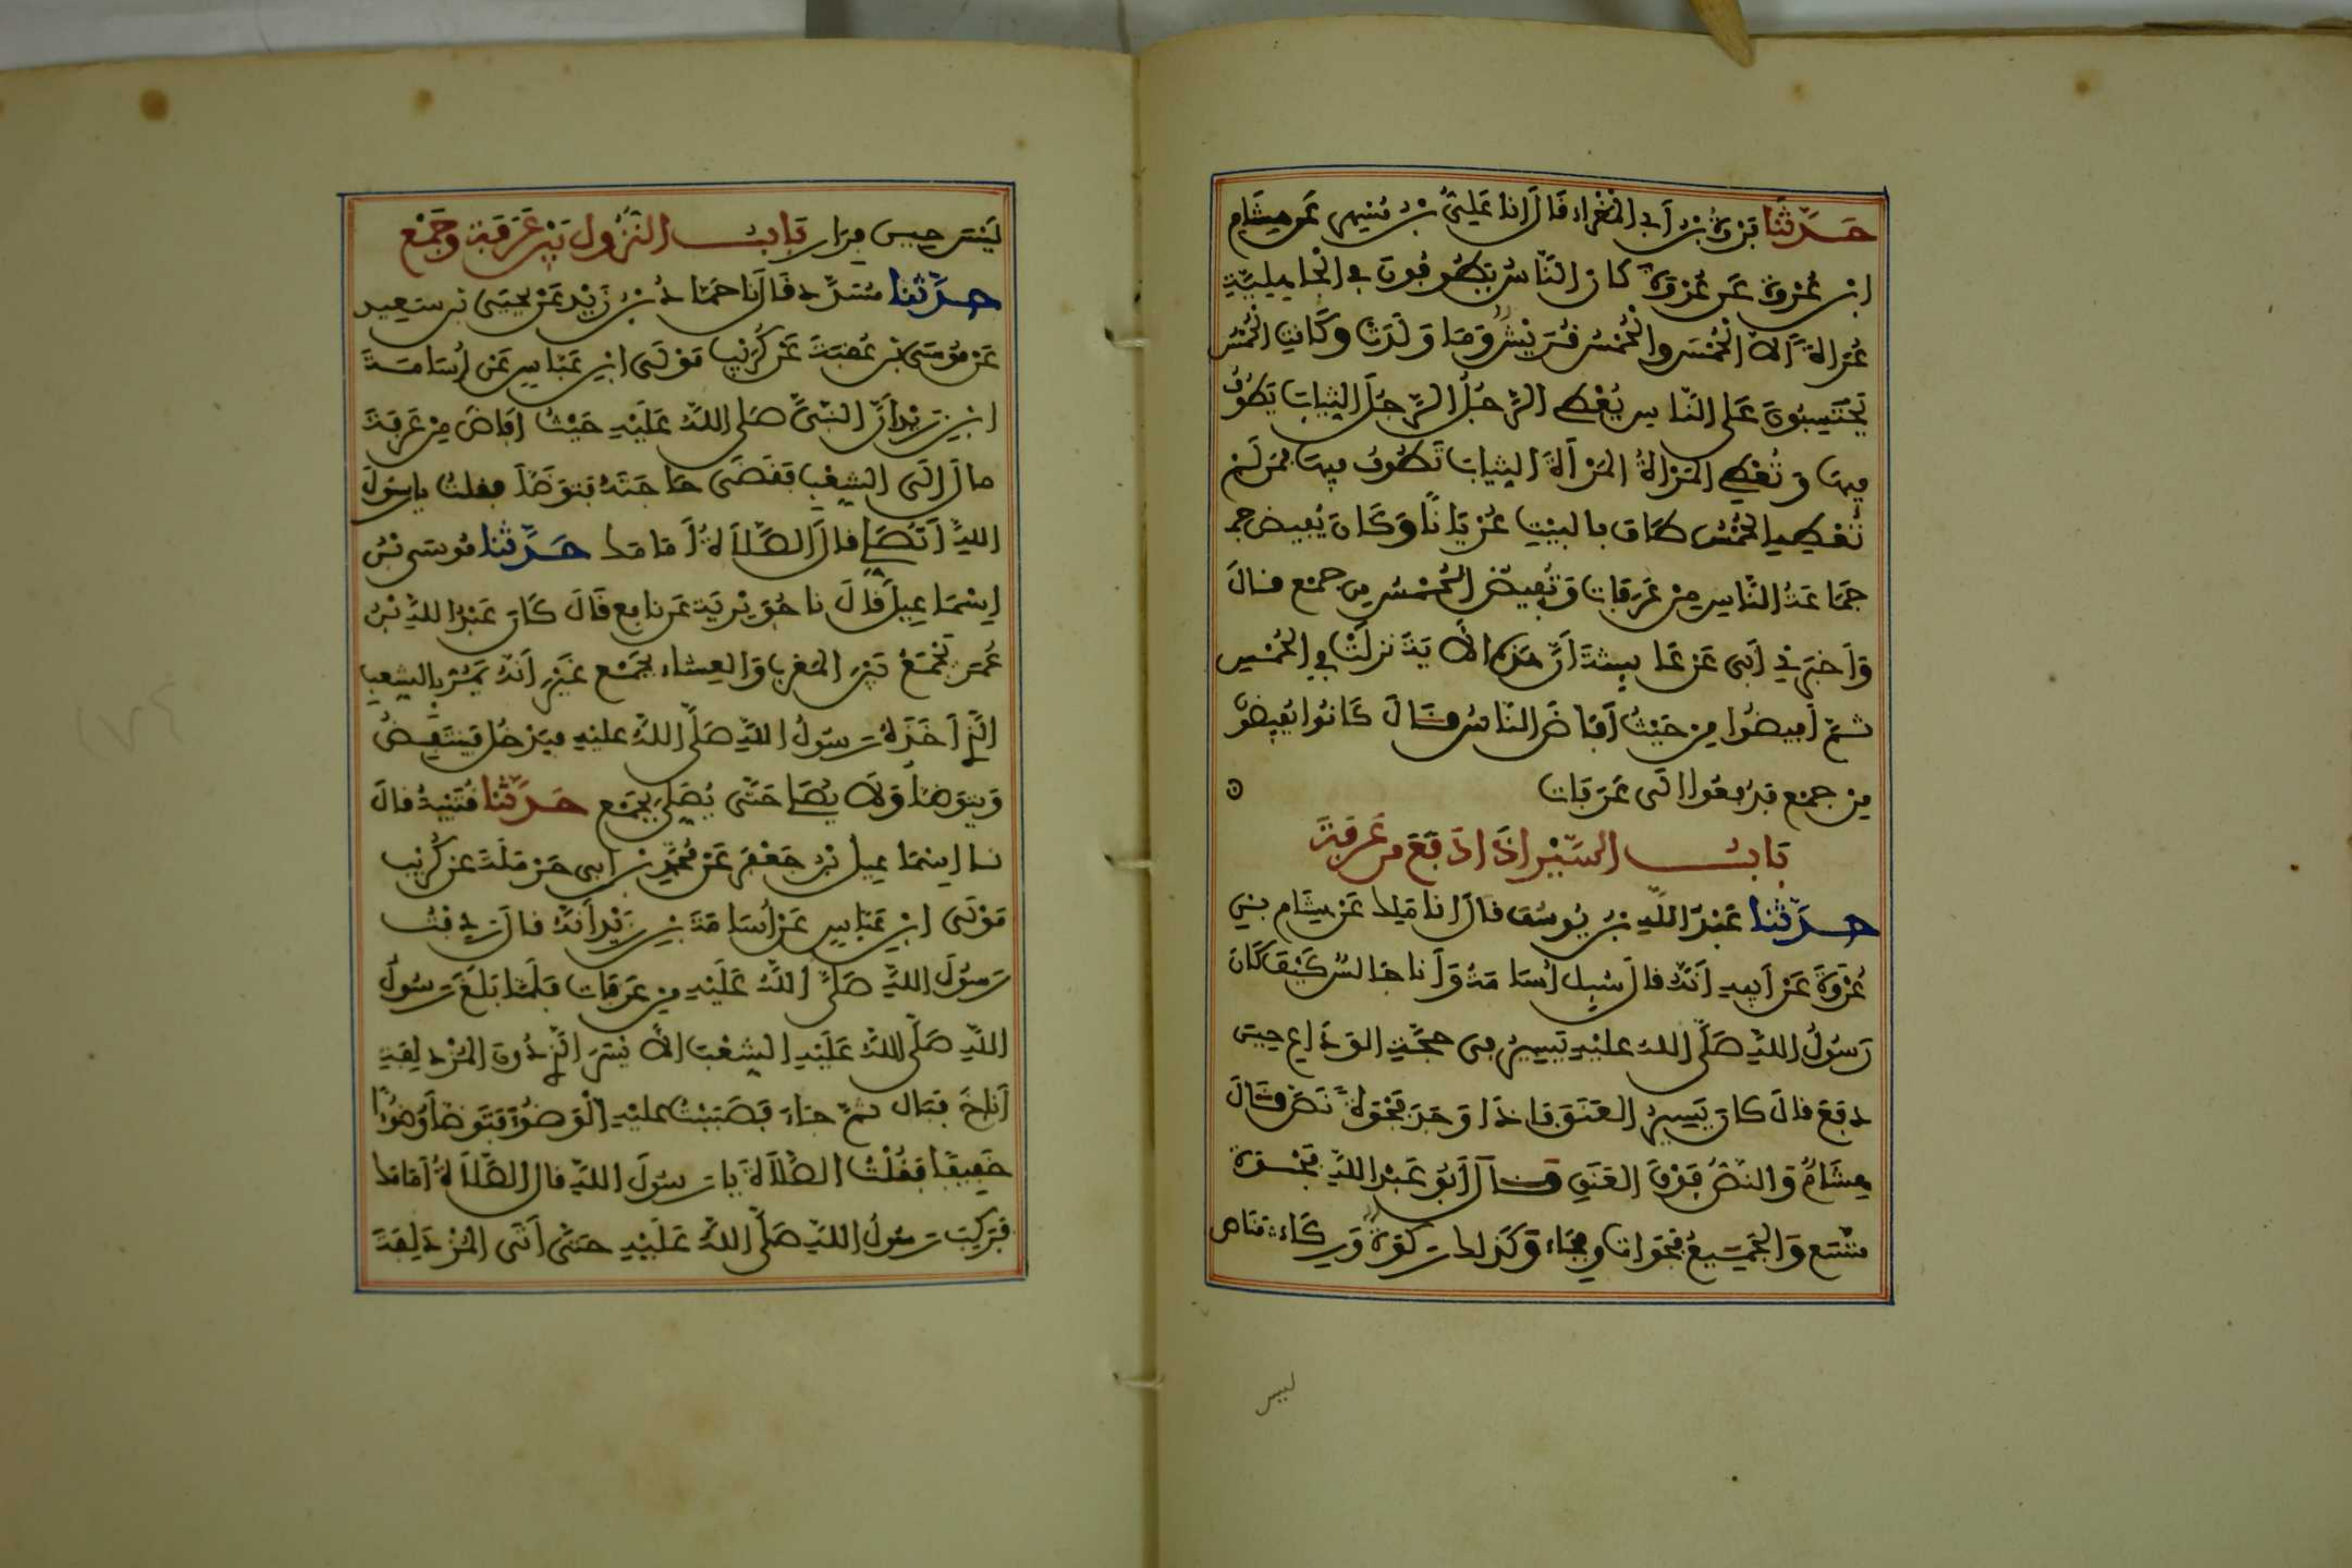 حَدَّثَنَا فَرْوَةُ بْنُ أَبِي الْمَغْرَاءِ قَالَ أَنَا عَلِيُّ بْنُ مُسْهِرٍ عَنْ هِشَامِ
ابْنِ عُرْوَةَ عَنْ عُرْوَةَ كَانَ النَّاسُ يَطُوفُونَ فِي الْجَاهِلِيَّةِ
عُرَاةً إِلَّا الْحُمْسَ وَالْحُمْسُ قُرَيْشٌ وَمَا وَلَدَتْ وَكَانَتِ الْحُمْسُ
يَحْتَسِبُونَ عَلَى النَّاسِ يُعْطِي الرَّجُلُ الرَّجُلَ الثِّيَابَ يَطُوفُ
فِيهَا وَتُعْطِي الْمَرْأَةُ الْمَرْأَةَ الثِّيَابَ تَطُوفُ فِيهَا فَمَنْ لَمْ
تُعْطِهِ الْحُمْسُ طَافَ بِالْبَيْتِ عُرْيَانًا وَكَانَ يُفِيضُ جم
جَمَاعَةُ النَّاسِ مِنْ عَرَفَاتٍ وَتُفِيضُ الْحُمْسُ مِنْ جَمْعٍ قَالَ
وَأَخْبَرَنِي أَبِي عَنْ عَائِشَةَ أَنَّ هَذِهِ الْآيَةَ نَزَلَتْ فِي الْحُمْسِ
ثُمَّ أَفِيضُوا مِنْ حَيْثُ أَفَاضَ النَّاسُ قَالَ كَانُوا يُفِيضُونَ
مِنْ جَمْعٍ فَدُفِعُوا إِلَى عَرَفَاتٍ
بَابُ السَّيْرِ إِذَا دَفَعَ مِنْ عَرَفَةَ
حَدَّثَنَا عَبْدُ اللَّهِ بْنُ يُوسُفَ قَالَ أَنَا مَلِكٌ عَنْ هِشَامِ بْنِ
عُرْوَةَ عَنْ أَبِيهِ أَنَّهُ قَالَ سُئِلَ أُسَامَةُ وَأَنَا جَالِسٌ كَيْفَ كَانَ
رَسُولُ اللَّهِ صَلَّى اللَّهُ عَلَيْهِ يَسِيرُ فِي حَجَّةِ الْوَدَاعِ حِينَ
دَفَعَ قَالَ كَانَ يَسِيرُ الْعَنَقَ فَإِذَا وَجَدَ فَجْوَةً نَصَّ قَالَ
هِشَامٌ وَالنَّصُّ فَوْقَ الْعَنَقِ قَالَ أَبُو عَبْدِ اللَّهِ فَجْوَةٌ
مُتَّسَعٌ وَالْجَمِيعُ فَجَوَاتٌ وَفِجَاءٌ وَكَذَلِكَ رَكْوَةٌ وَرِكَاءٌ مَنَاصٌ
ليس
لَيْسَ حِينَ فِرَارٍ بَابُ النُّزُولِ بَيْنَ عَرَفَةَ وَجَمْعٍ
حَدَّثَنَا مُسَدَّدٌ قَالَ نَا حَمَّادُ بْنُ زَيْدٍ عَنْ يَحْيَى بْنِ سَعِيدٍ
عَنْ مُوسَى بْنِ عُقْبَةَ عَنْ كُرَيْبٍ مَوْلَى ابْنِ عَبَّاسٍ عَنْ أُسَامَةَ
ابْنِ زَيْدٍ أَنَّ النَّبِيَّ صَلَّى اللَّهُ عَلَيْهِ حَيْثُ أَفَاضَ مِنْ عَرَفَةَ
مَالَ إِلَى الشِّعْبِ فَقَضَى حَاجَتَهُ فَتَوَضَّأَ فَقُلْتُ يَا رَسُولَ
اللَّهِ أَتُصَلِّي قَالَ الصَّلَاةُ أَمَامَكَ حَدَّثَنَا مُوسَى بْنُ
إِسْمَاعِيلَ قَالَ نَا جُوَيْرِيَةُ عَنْ نَافِعٍ قَالَ كَانَ عَبْدُ اللَّهِ بْنُ
عُمَرَ يَجْمَعُ بَيْنَ الْمَغْرِبِ وَالْعِشَاءِ بِجَمْعٍ غَيْرَ أَنَّهُ يَمُرُّ بِالشِّعْبِ
الَّذِي أَخَذَهُ رَسُولُ اللَّهِ صَلَّى اللَّهُ عَلَيْهِ فَيَدْخُلُ فَيَنْتَفِضُ
وَيَتَوَضَّأُ وَلَا يُصَلِّي حَتَّى يُصَلِّيَ بِجَمْعٍ حَدَّثَنَا قُتَيْبَةُ قَالَ
نَا إِسْمَاعِيلُ بْنُ جَعْفَرٍ عَنْ مُحَمَّدِ بْنِ أَبِي حَرْمَلَةَ عَنْ كُرَيْبٍ
مَوْلَى ابْنِ عَبَّاسٍ عَنْ أُسَامَةَ بْنِ زَيْدٍ أَنَّهُ قَالَ رَدِفْتُ
رَسُولَ اللَّهِ صَلَّى اللَّهُ عَلَيْهِ مِنْ عَرَفَاتٍ فَلَمَّا بَلَغَ رَسُولُ
اللَّهِ صَلَّى اللَّهُ عَلَيْهِ الشِّعْبَ الْأَيْسَرَ الَّذِي دُونَ الْمُزْدَلِفَةِ
أَنَاخَ فَبَالَ ثُمَّ جَاءَ فَصَبَبْتُ عَلَيْهِ الْوَضُوءَ فَتَوَضَّأَ وُضُوءًا
خَفِيفًا فَقُلْتُ الصَّلَاةَ يَا رَسُولَ اللَّهِ قَالَ الصَّلَاةُ أَمَامَكَ
فَرَكِبَ رَسُولُ اللَّهِ صَلَّى اللَّهُ عَلَيْهِ حَتَّى أَتَى الْمُزْدَلِفَةَ